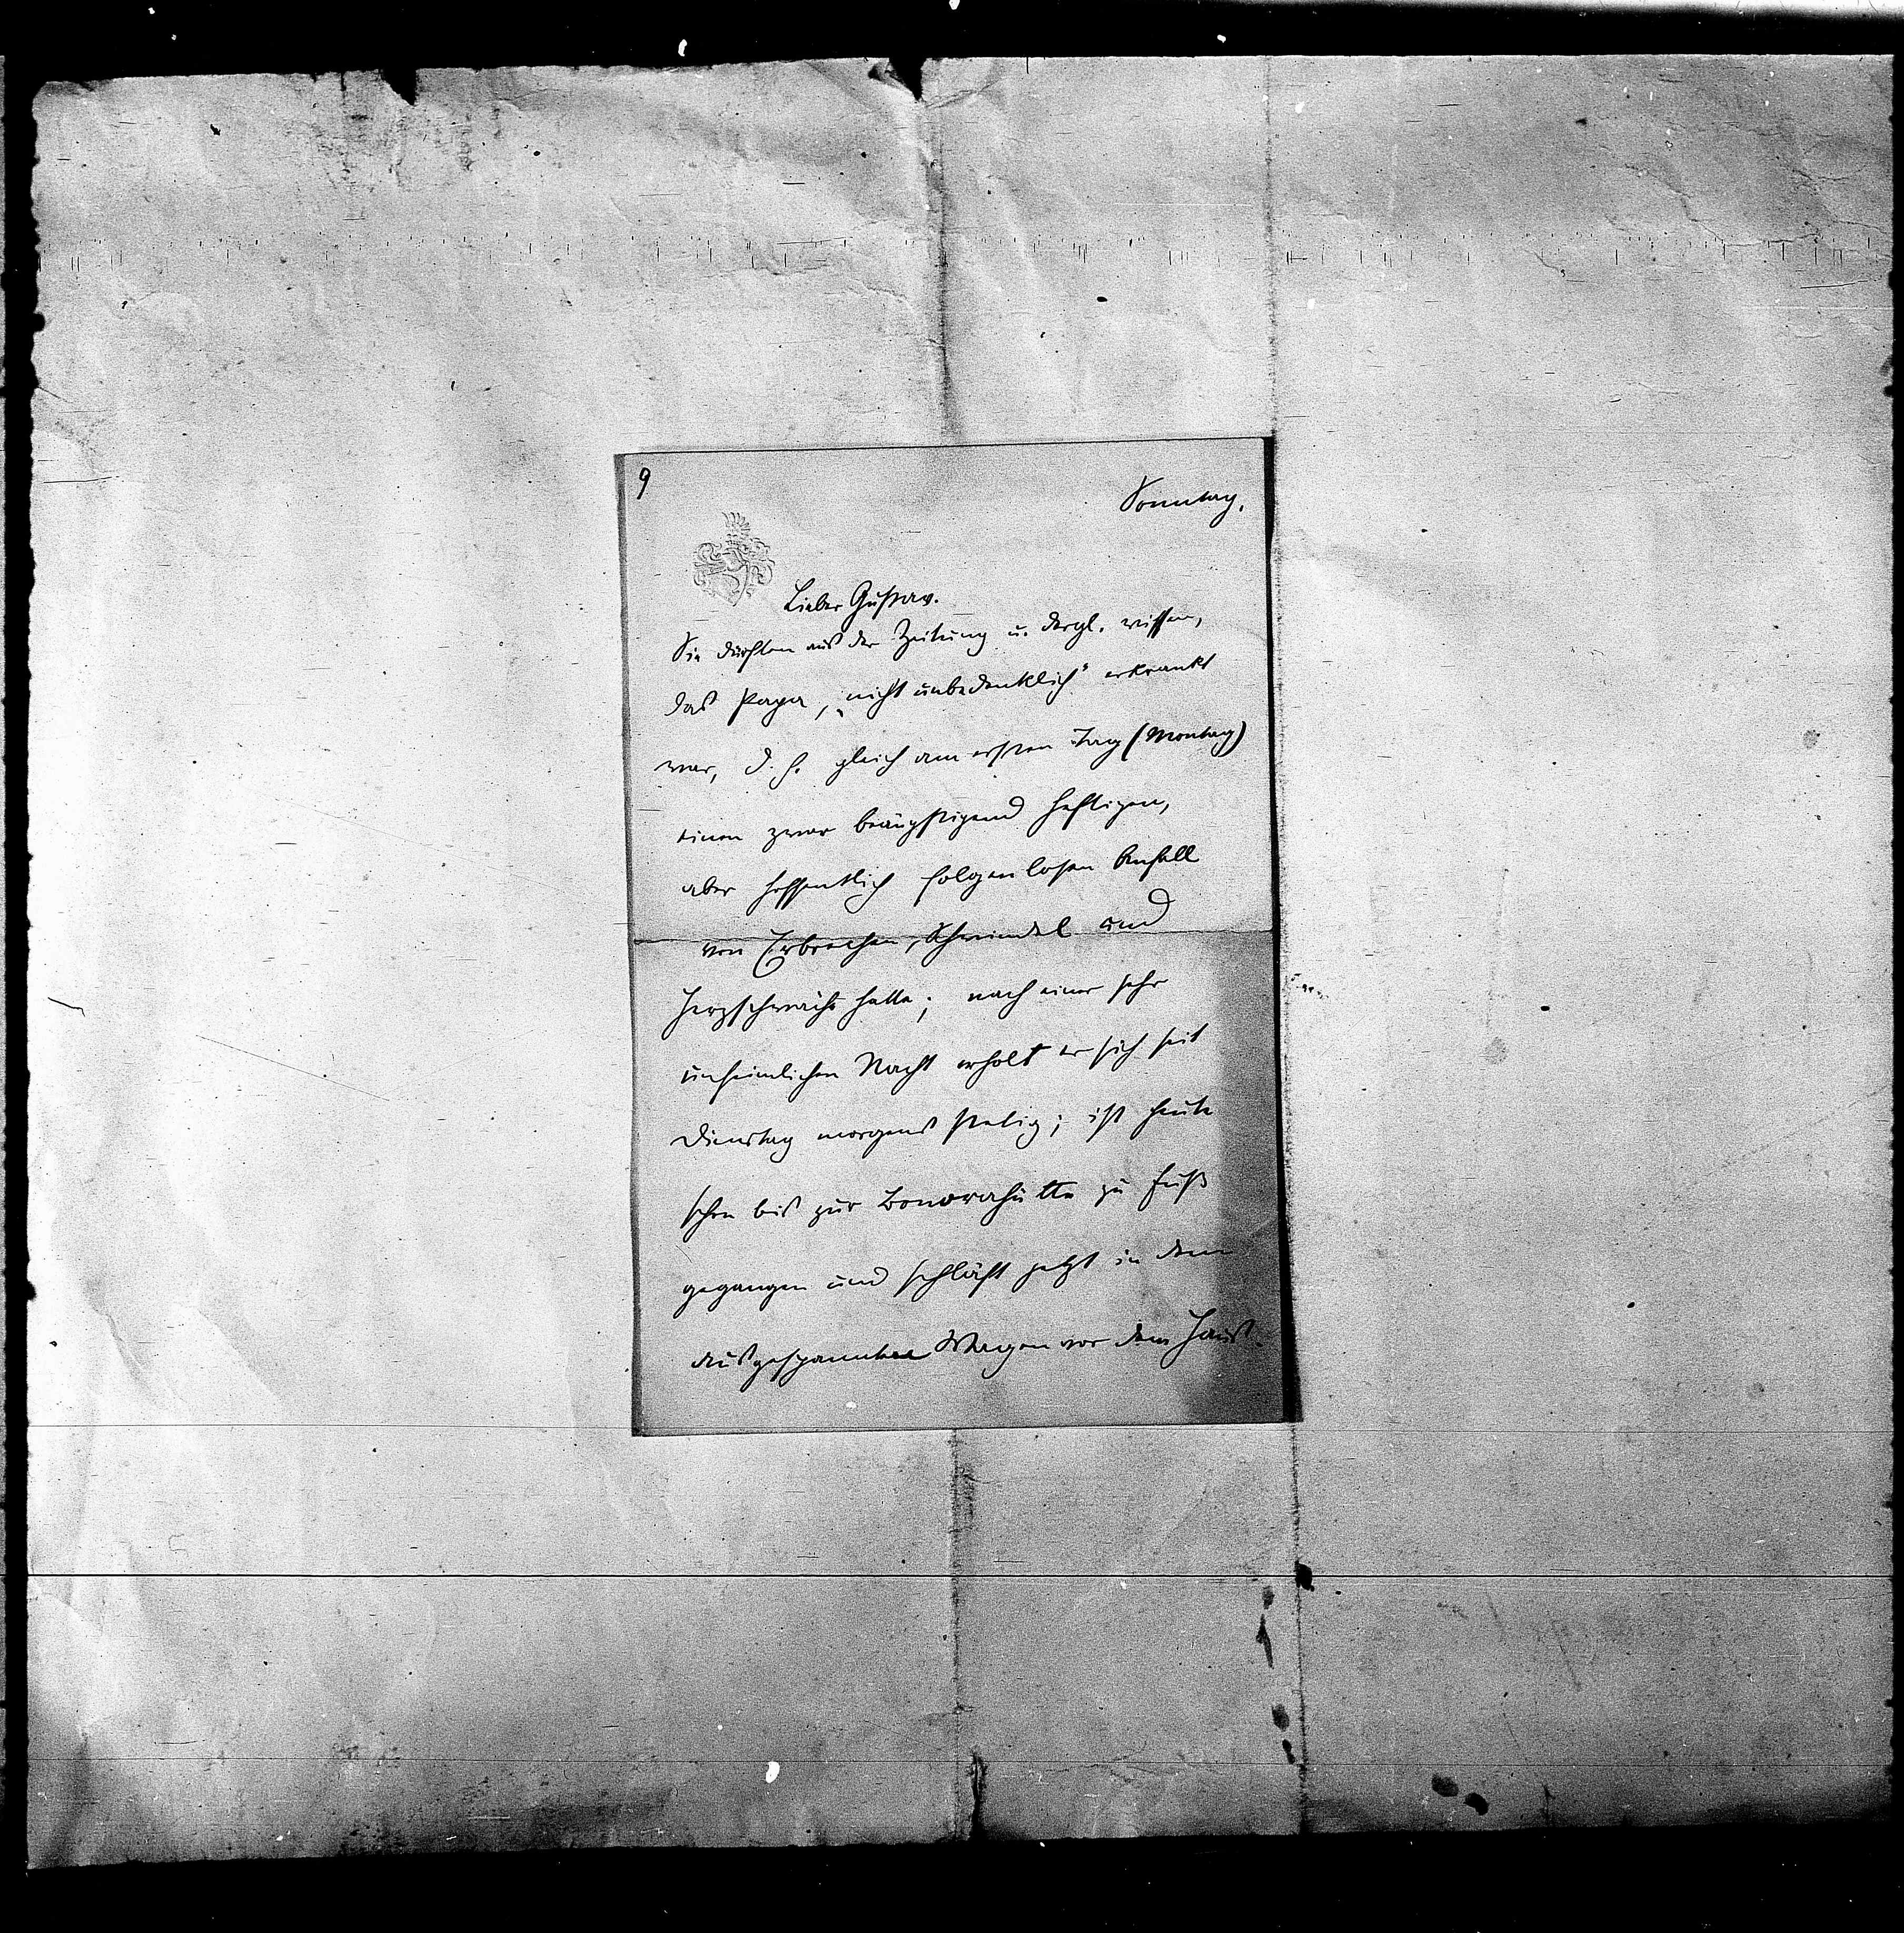 9
Sonntag.
Lieber Gustav.
Sie dürften aus der Zeitung u. dergl. wissen,
das Papa, „nicht unbedenklich" erkrankt
war, d. h. gleich am ersten Tag (Montag)
einen zwar beängstigend heftigen,
aber hoffentlich folgenlosen Anfall
von Erbrechen, Schwindel und
Herzschwäche hatte; nach einer sehr
unheimlichen Nacht erholt er sich seit
Dienstag morgens stetig; ist heute
schon bis zur zu Fuß
gegangen und schläft jetzt in dem
ausgespannten Wagen vor dem Haus.